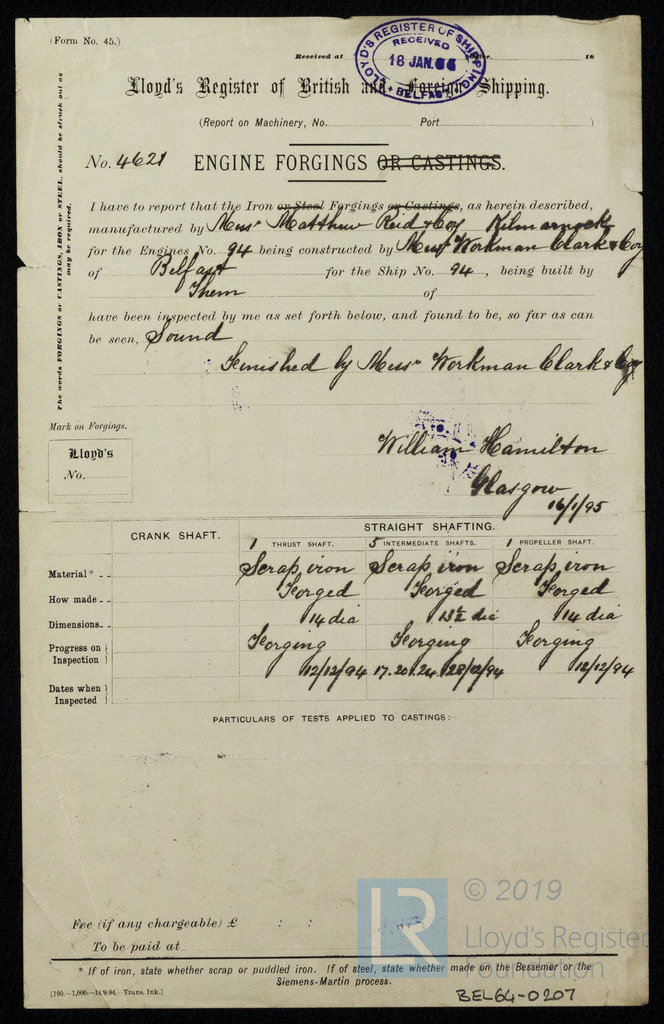 (Form No. 45.)
Received at 18
LLOYD'S REGISTER OF SHIPPING
RECEIVED
18 JAN.
BELFAST
Lloyd's Register of British and Foreign Shipping.
(Report on Machinery, No. Port )
No. 4621 ENGINE FORGINGS OR CASTINGS.
The words FORGINGS or CASTINGS, IRON or STEEL, should be struck out as
may be required.
I have to report that the Iron or Steel Forgings or Castings, as herein described,
manufactured by Messrs Matthew Reid & Coy Kilmarnock
for the Engines No. 94 being constructed by Messrs Workman Clark & Coy
of Belfast for the Ship No. 94, being built by
Them of
have been inspected by me as set forth below, and found to be, so far as can
be seen, Sound
Finished by Messrs Workman Clark & Coy
Mark on Forgings.
Lloyd's
No.
William Hamilton
Glasgow
16/1/95
CRANK SHAFT. STRAIGHT SHAFTING.
1 THRUST SHAFT. 5 INTERMEDIATE SHAFTS. 1 PROPELLER SHAFT.
Material* Scrap iron Scrap iron Scrap iron
How made Forged Forged Forged
Dimensions 14 dia 13½ dia 14 dia
Progress on Inspection Forging Forging Forging
Dates when Inspected 12/12/94 17.20.24.28/12/94 12/12/94
PARTICULARS OF TESTS APPLIED TO CASTINGS:—
Fee (if any chargeable) £ : :
To be paid at
* If of iron, state whether scrap or puddled iron. If of steel, state whether made on the Bessemer or the
Siemens-Martin process.
(190.—1,000.—14/9/94.—Trans. Ink.)
BEL64-0207
LR
© 2019
Lloyd's Register
Foundation